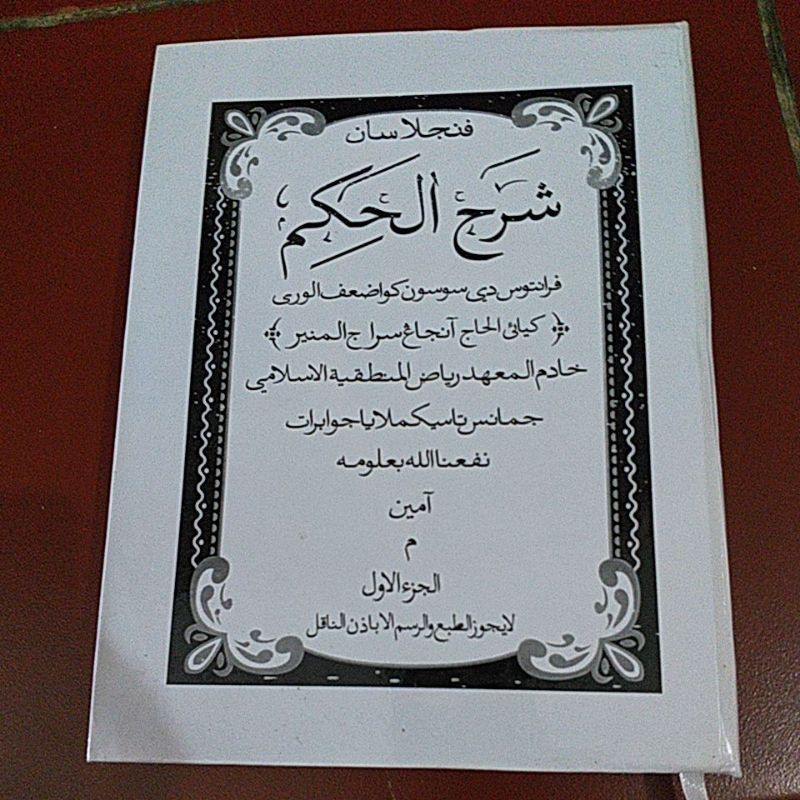 فنجلاسان
شرح الحكم
فرانتوس دي سوسون كو اضعف الورى
﴿ كيائي الحاج آنجاڠ سراج المنير ﴾
خادم المعهد رياض المنطقية الاسلامي
جمانس تاسيكملايا جوا برات
نفعنا الله بعلومه
آمين
م
الجزء الاول
لا يجوز الطبع والرسم الا باذن الناقل